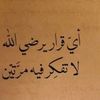 أيّ قرار يرضي الله
لا تفكر فيه مرّتين